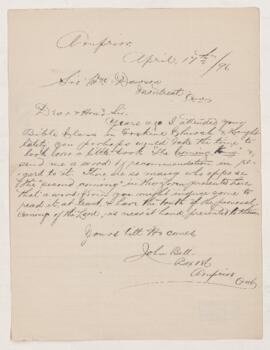 Arnprior,
April, 17th/96
Sir Wm Dawson
Montreal,
Dear & Hon'd Sir,
Years ago I attended your
Bible Class in Erskine Church & thought
lately, you perhaps would take the time to
look over a little book "The Coming
send me a word of recommendation in re-
gard to it. There are so many who oppose
the second coming in the form presented here
that a word from you might induce some to
read it, at least, & have the truth of the personal
coming of the Lord, as near at hand, presented to them.
Yours till He comes
John Bell
Box
Arnprior
Ont.